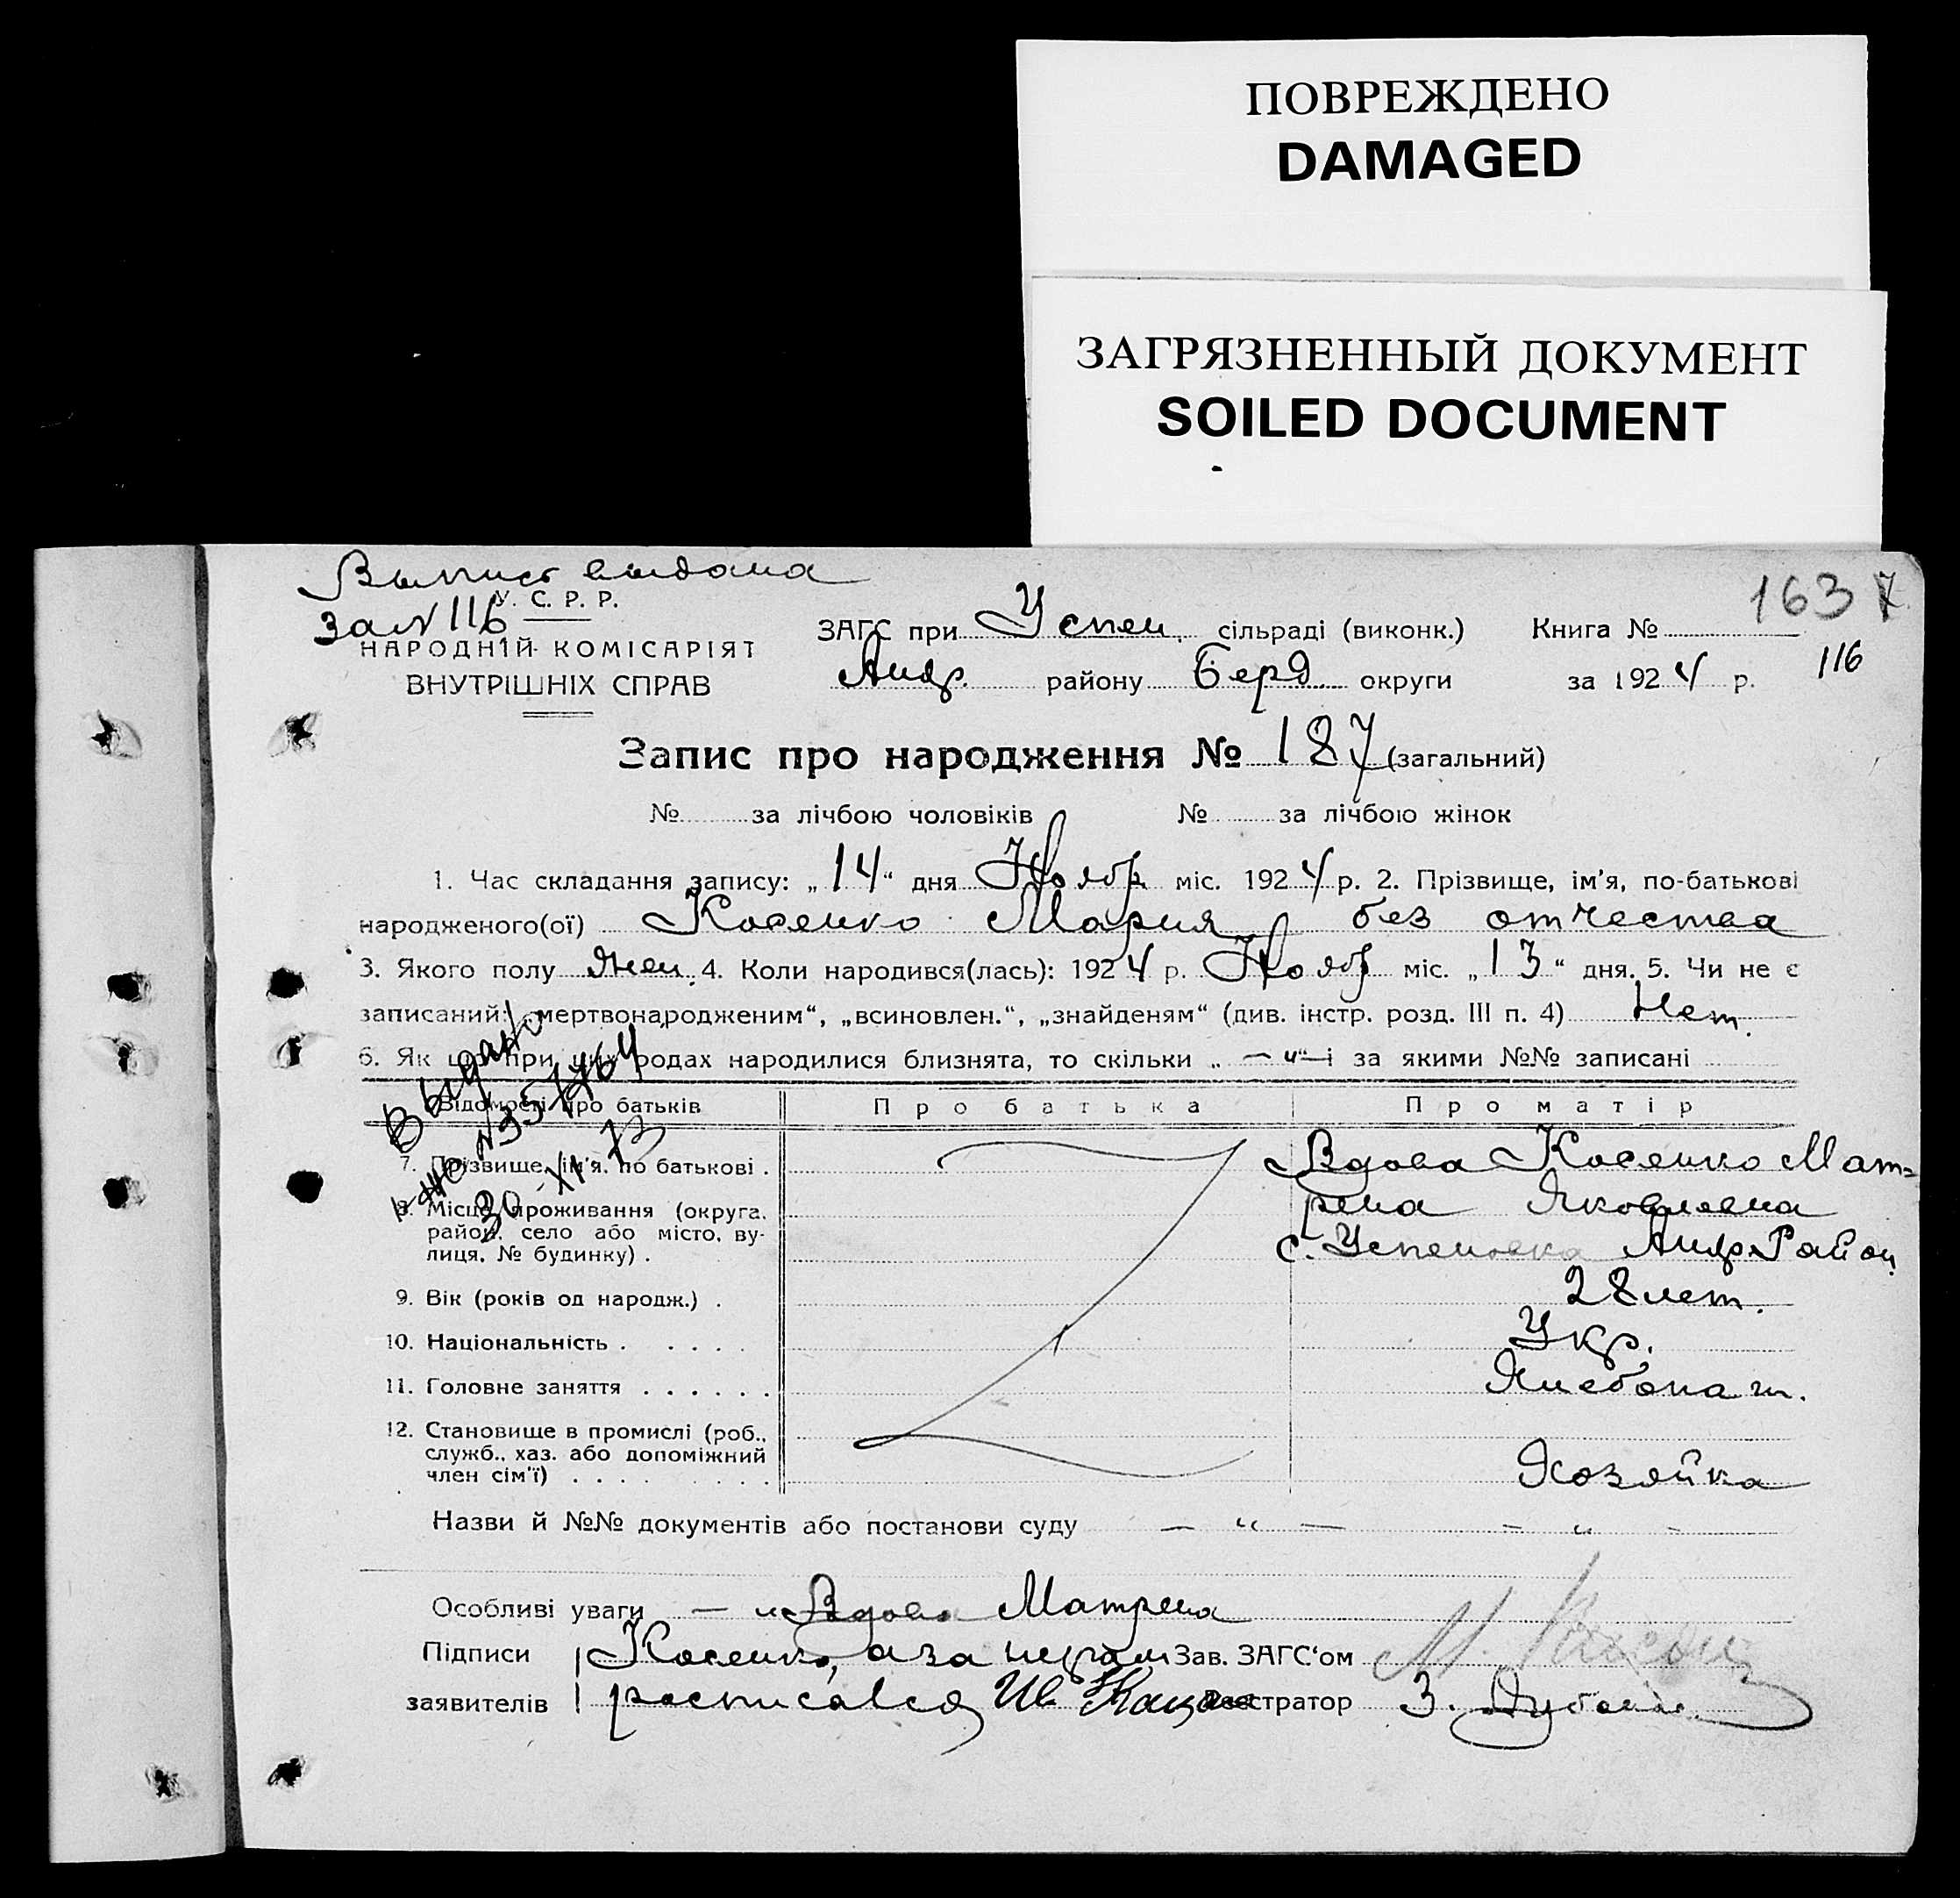 ПОВРЕЖДЕНО
DAMAGED
ЗАГРЯЗНЕННЫЙ ДОКУМЕНТ
SOILED DOCUMENT
Выпись выдана
за № 116
1637
116
У. С. Р. Р.
НАРОДНІЙ КОМІСАРІЯТ
ВНУТРІШНІХ СПРАВ
ЗАГС при Успен. сільраді (виконк.) Книга №
Андр. району Берд. округи за 1924 р.
Запис про народження № 187 (загальний)
№ за лічбою чоловіків № за лічбою жінок
1. Час складання запису: „14“ дня Ноябр міс. 1924 р. 2. Прізвище, ім'я, по-батькові
народженого(ої) Косенко Мария без отчества
3. Якого полу жен. 4. Коли народився(лась): 1924 р. Нояб міс. „13“ дня. 5. Чи не є
записаний: „мертвонародженим“, „всиновлен.“, „знайденям“ (див. інстр. розд. III п. 4) Нет.
6. Як що при цих родах народилися близнята, то скільки „ — „ — і за якими №№ записані
Выдано
30-XI-73
Відомості про батьків Про батька Про матір
7. Прізвище, ім'я, по батькові . Вдова Косенко Мат=
рена Яковлевна
8. Місце проживання (округа,
район, село або місто, ву-
лиця, № будинку) . с. Успеновка Андр. Район
9. Вік (років од народж.) . 28 лет.
10. Національність . . . . . Укр.
11. Головне заняття . . . . . . Хлебопаш.
12. Становище в промислі (роб.,
служб., хаз. або допоміжний
член сім'ї) . . . . . . . . Хозяйка
Назви й №№ документів або постанови суду — „ — — „ -
Особливі уваги — „ Вдова Матрена
Підписи Косенко, а за неграм Зав. ЗАГС'ом
заявителів росписался Ив. Реєстратор З.